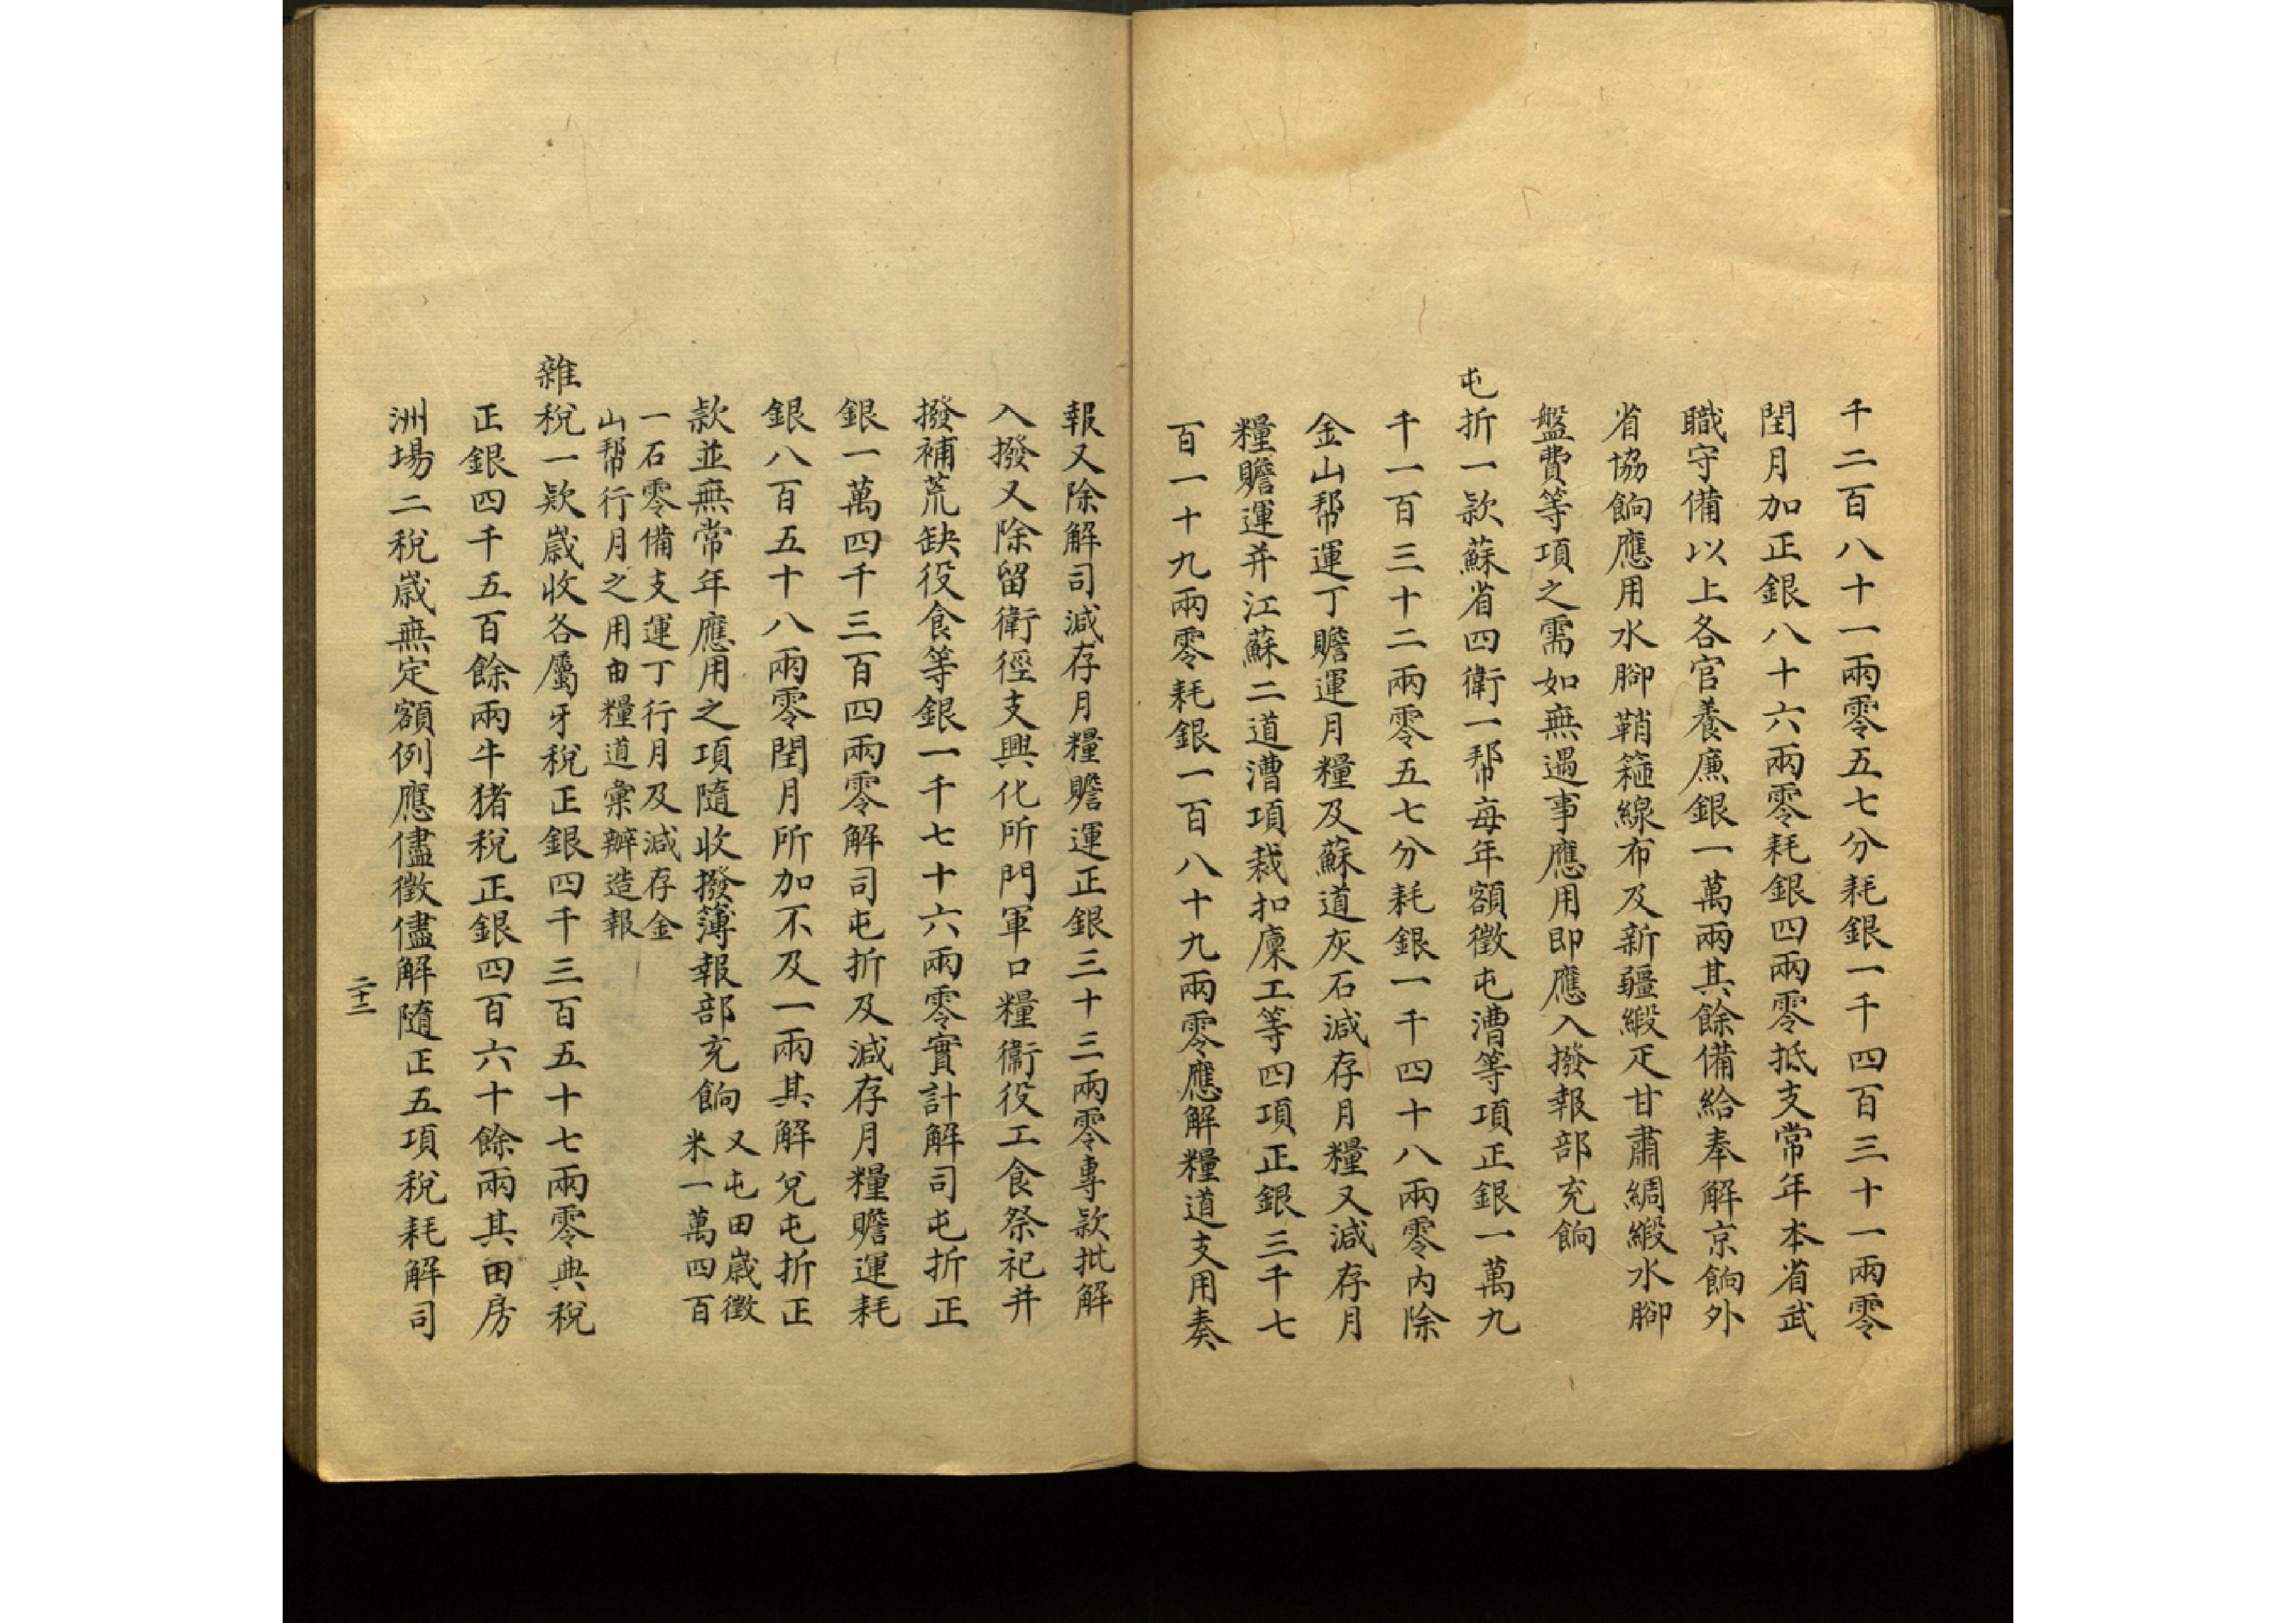 千二百八十一兩零五七分耗銀一千四百三十一兩零
閏月加正銀八十六兩零耗銀四兩零抵支常年本省武
職守備以上各官養廉銀一萬兩其餘備給奉解京餉外
省協餉應用水腳鞘箍線布及新疆緞疋甘肅綢緞水腳
盤費等項之需如無遇事應用即應入撥報部充餉
屯折一款蘇省四衛一幇每年額徵屯漕等項正銀一萬九
千一百三十二兩零五七分耗銀一千四十八兩零內除
金山幇運丁贍運月糧及蘇道灰石減存月糧又減存月
糧贍運并江蘇二道漕項裁扣廩工等四項正銀三千七
百一十九兩零耗銀一百八十九兩零應解糧道支用奏
報又除解司減存月糧贍運正銀三十三兩零專款批解
入撥又除留衛徑支興化所門軍口糧衛役工食祭祀并
撥補荒缺役食等銀一千七十六兩零實計解司屯折正
銀一萬四千三百四兩零解司屯折及減存月糧贍運耗
銀八百五十八兩零閏月所加不及一兩其解兌屯折正
款並無常年應用之項隨收撥簿報部充餉
又屯田歲徵
米一萬四百
一石零備支運丁行月及減存金
山幇行月之用由糧道彙辦造報
雜稅一款歲收各屬牙稅正銀四千三百五十七兩零典稅
正銀四千五百餘兩牛猪稅正銀四百六十餘兩其田房
洲場二稅歲無定額例應儘徵儘解隨正五項稅耗解司
二十二